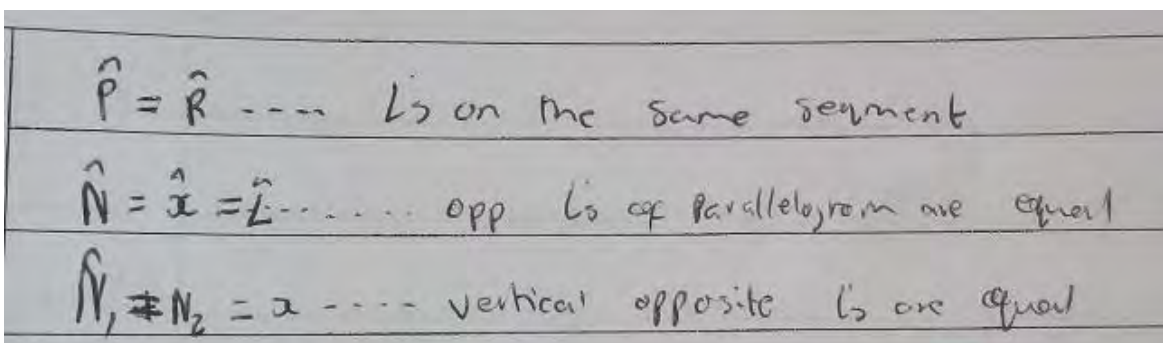 P̂ = R̂ ---- Ls on the same segment
N̂ = x̂ = L̂ ....... opp Ls of parallelogram are equal
N̂₁ = N₂ = x ---- vertical opposite Ls are equal